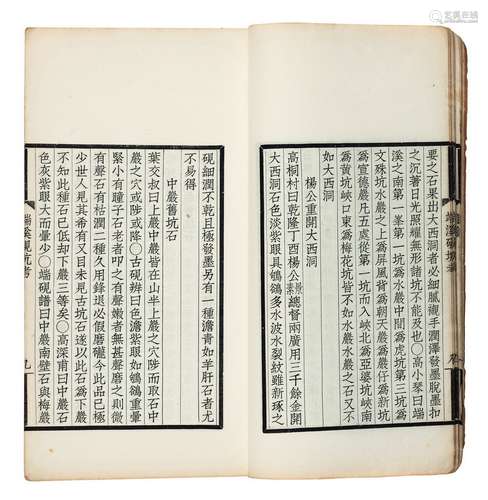 要之石果出大西洞者必細膩襯手潤澤發墨脫墨扣
之沉著日光照耀無形諸坑不能及也〇高小琴曰端
溪之南第一峯第一坑爲水巖中間爲虎坑第三坑爲
文殊坑水巖之上爲屏風背爲朝天巖爲巖仔爲新坑
爲宣德巖凡五處從第一坑而入峽北爲亞婆坑峽南
爲黃坑峽口東爲梅花坑皆不如水巖水巖之石又不
如大西洞
楊公重開大西洞
高桐村曰乾隆丁酉楊公景素總督兩廣用三千餘金開
大西洞石色淡紫眼具鴝鵒多水波水裂紋雖新琢之
硯細潤不乾且極發墨另有一種澹青如羊肝石者尤
不易得
中巖舊坑石
葉交叔曰上巖中巖皆在山半上巖之穴陟而取石中
巖之穴或陟或降〇古硯辨曰色澹紫眼如鴝鵒重暈
緊小有瞳子石老者叩之有聲嫩者無甚聲磨之則微
有聲石有枯潤二種久用鋒退必假磨礲今此品已極
少世人見其希有又目未見古坑石遂以此石爲下巖
不知此種石已低却下巖三等矣〇高深甫曰中巖石
色灰紫眼大而暈少〇端硯譜曰中巖南壁石與梅巖
端溪硯坑考
九